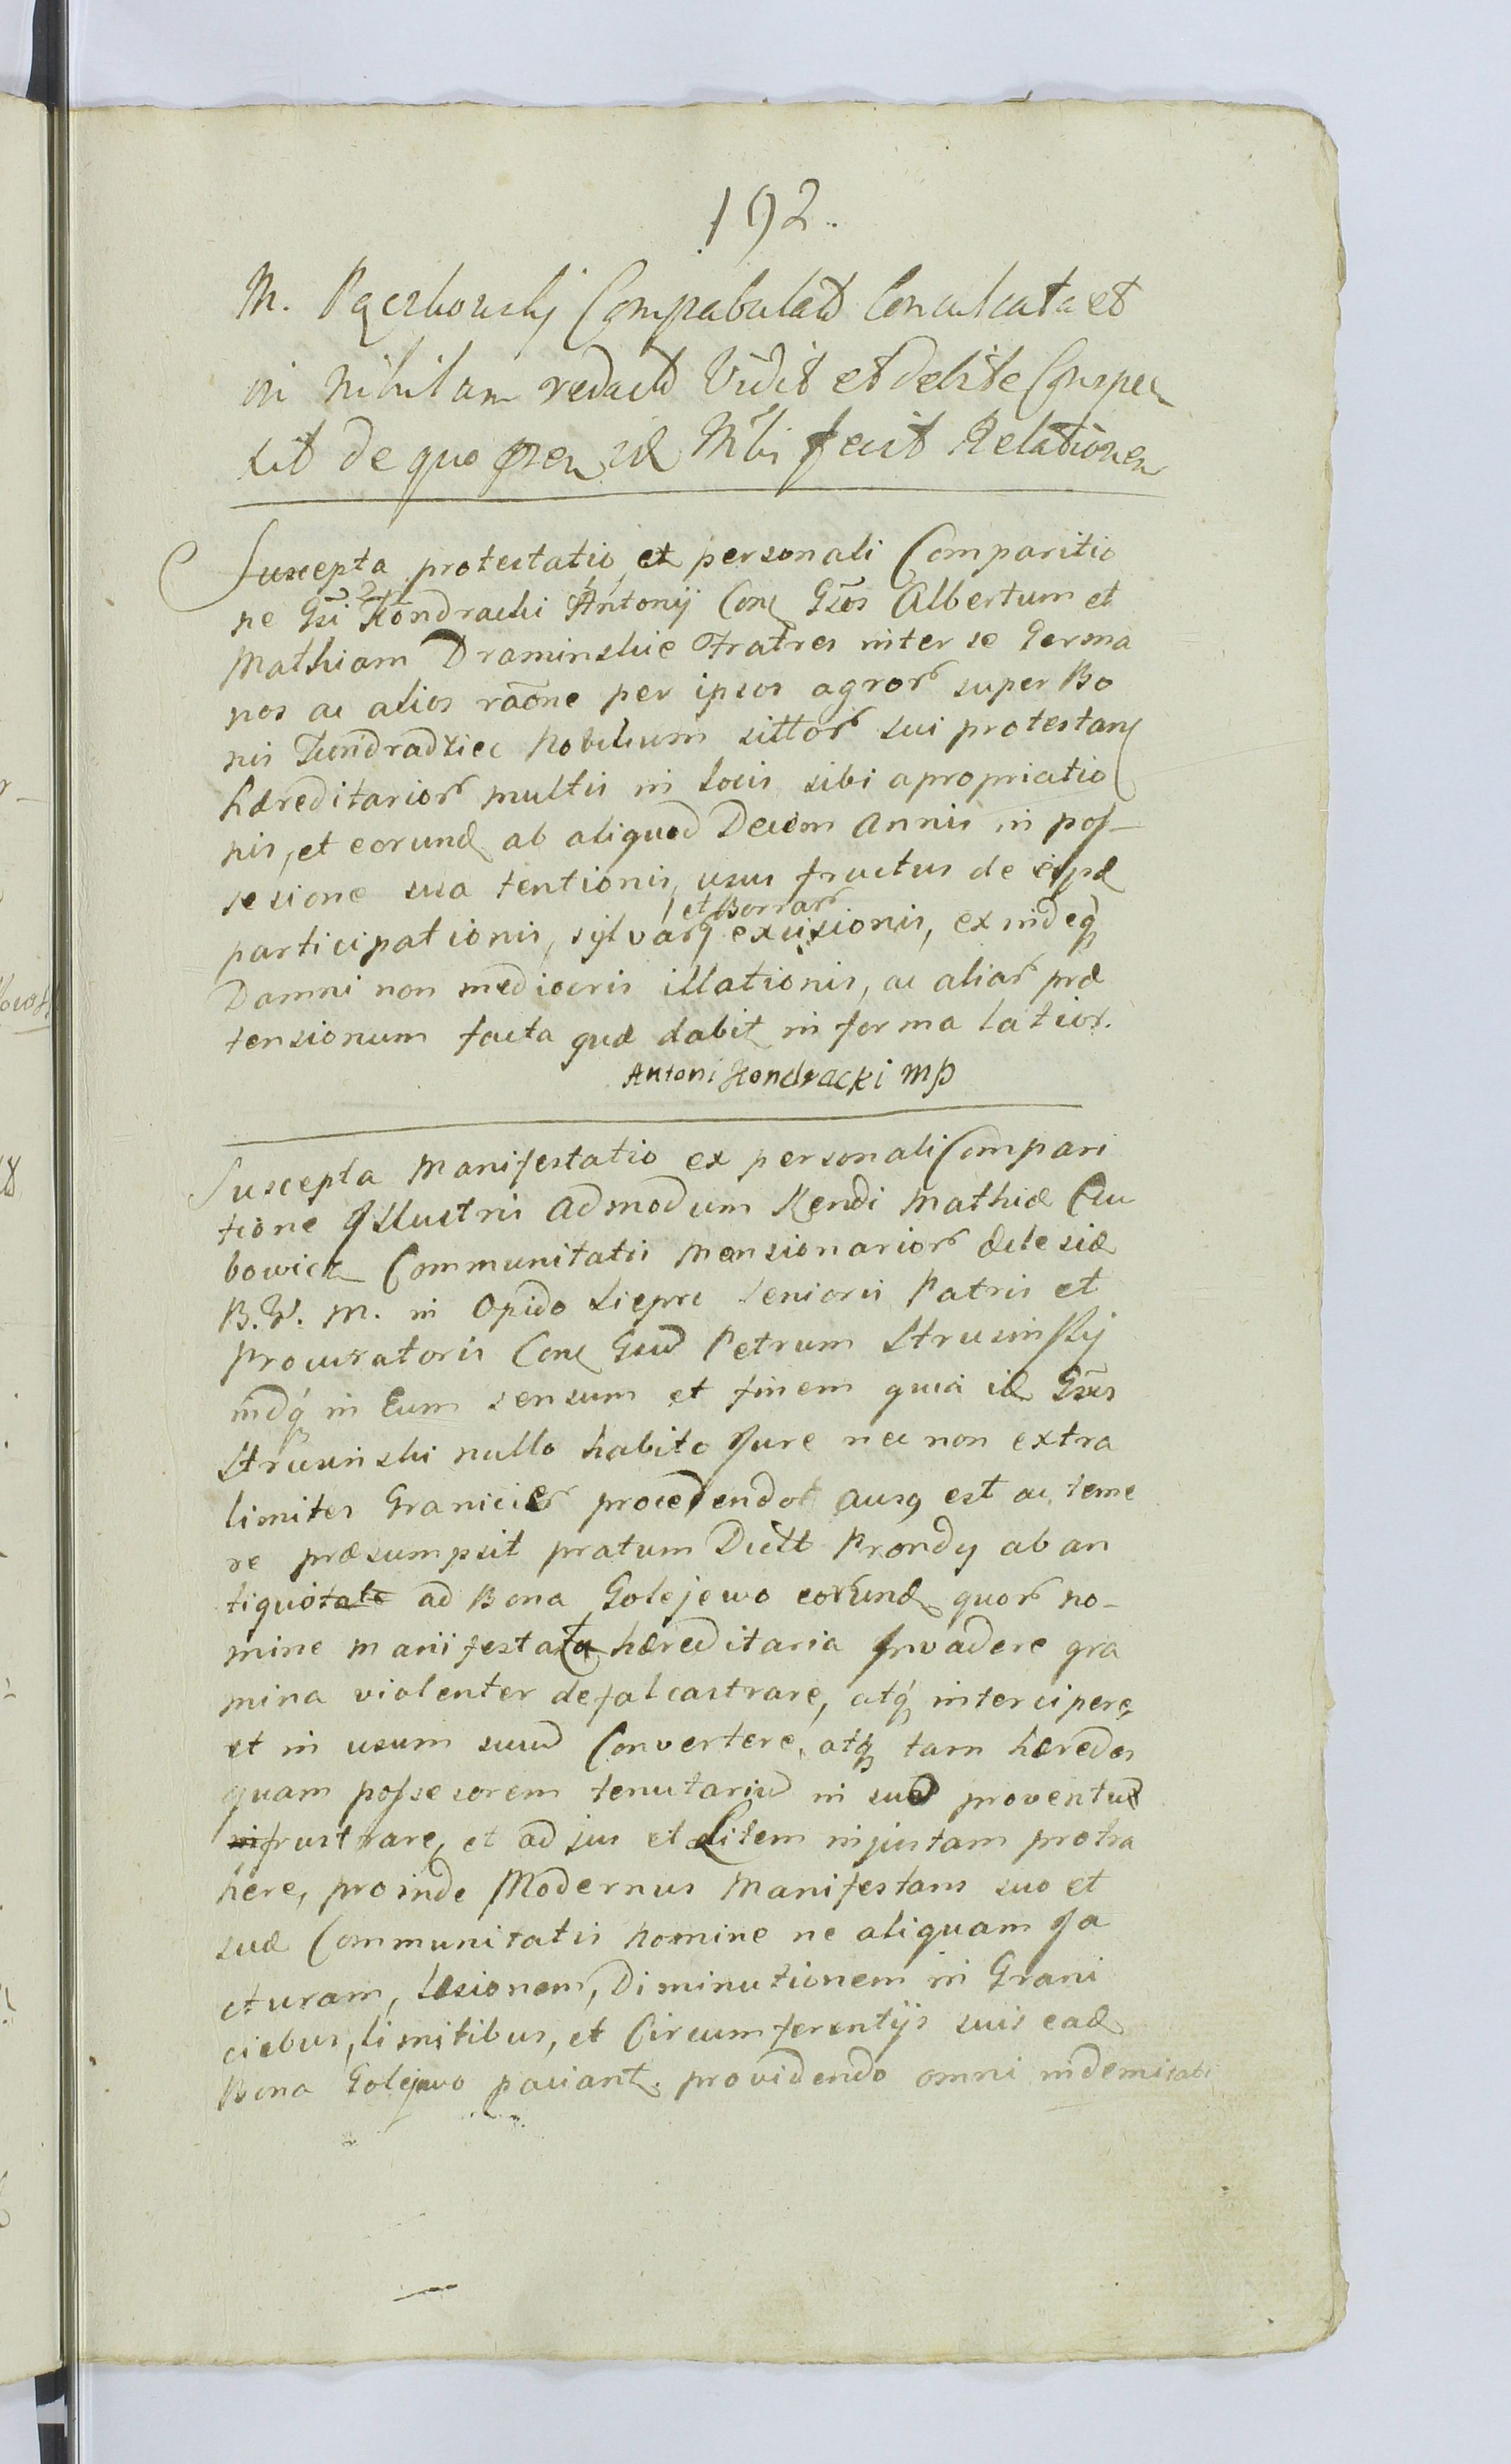 192.
M. Pączkowskj Compabulatū Conculcata et
in Nihilum redactū Vidit et debite Conspe
xit de quo præm̄ id Mihi fecit Relationem
Suscepta protestatio et personali Comparitio
ne Gsi Kondracki Antonij Con̄ Gsos Albertum et
Mathiam Draminskie Fratres inter se Germa
nos ac alios raõne per ipsos agror super Bo
nis Kondradziec Nobilium sittor sui protestan̄
hæreditarior multis in locis sibi apropriatio
nis, et eorund ab aliquod Decem Annis in pos-
sesione sua tentionis, usus fructus de eisd
participationis, sylvar et Borrar excisionis, exindeq
Damni non mediocris illationis, ac aliar præ
tensionum facta quæ dabit in forma latior.
Antoni Kondracki mp
Suscepta Manifestatio ex personali Compari
tione Jllustris Admodum Rendi Mathiæ
bowicz Communitatis Mansionarior Æclesiæ
B. V. M. in Opido Sieprc Senioris Patris et
Procuratoris Con̄ Gsū Petrum Strusinskj
indq in Eum sensum et finem quia id Gsus
Strusinski nullo habito Jure nec non extra
limites Granicier procedendo ausq est ac teme
re præsumpsit pratum Dictt Prondy ab an
tiquo ad Bona Golejewo eorund quor no-
mine manifestatur hæreditaria Invadere gra
mina violenter defalcastrare, atq intercipere
et in usum suū Convertere, atq tam hæredes
quam possesorem tenutariū in suo proventū
frustrare, et ad jus et Litem injustam protra
here, proinde Modernus Manifestans suo et
suæ Communitatis Nomine ne aliquam Ja
cturam, læsionem, Diminutionem in Grani
ciebus, limitibus, et Circumferentijs suis ead
Bona Golejewo paciant. providendo omni indemitati